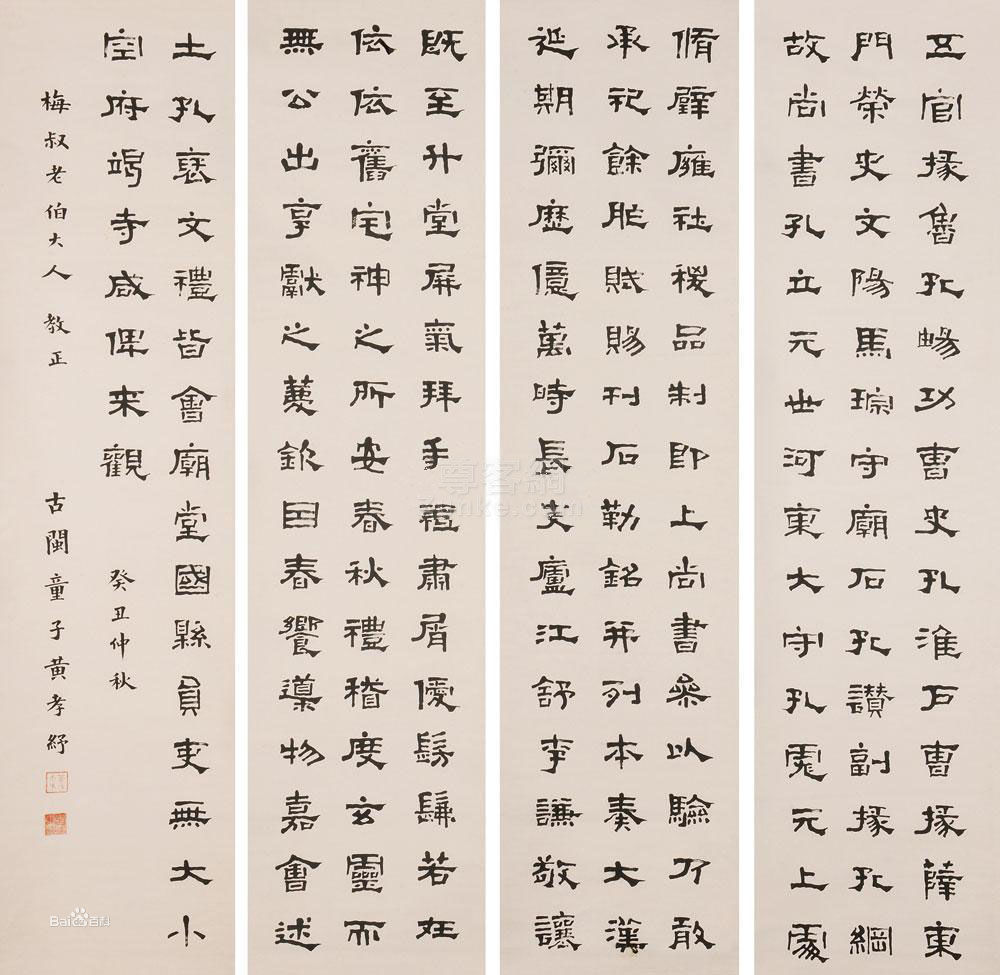 五官掾魯孔暢功曹史孔淮戶曹掾薛東
門榮史文陽馬琮守廟石孔讚副掾孔綱
故尚書孔立元世河東大守孔彪元上處
脩辟廱社稷品制即上尚書參以驗乃敢
承祀餘胙賦賜刊石勒銘并列本奏大漢
延期彌歷億萬時長史廬江舒李謙敬讓
既至升堂屏氣拜手祗肅屑僾髣髴若在
依依舊宅神之所安春秋禮稽度玄靈而
無公出享獻之薦欽因春饗導物嘉會述
土孔褒文禮皆會廟堂國縣員吏無大小
空府竭寺咸俾來觀
癸丑仲秋
梅叔老伯大人 教正
古閩童子黃孝紓
尊客網
Zunke.com
Baidu百科